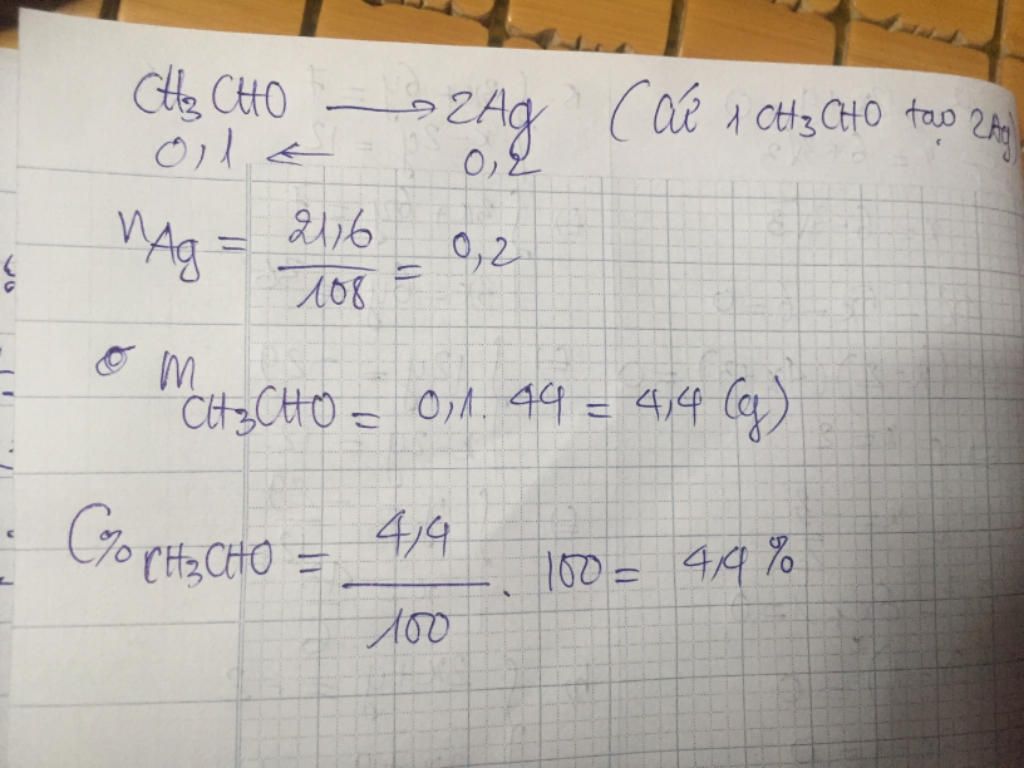 CH3CHO → 2Ag (Cứ 1 CH3CHO tạo 2Ag)
0,1 ← 0,2
nAg = 21,6 / 108 = 0,2
m CH3CHO = 0,1. 44 = 4,4 (g)
C% CH3CHO = 4,4 / 100 . 100 = 4,4 %